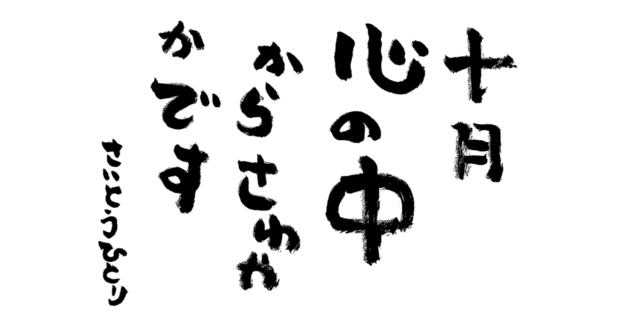 十月
心の中
からさわや
かです
さとうひとり